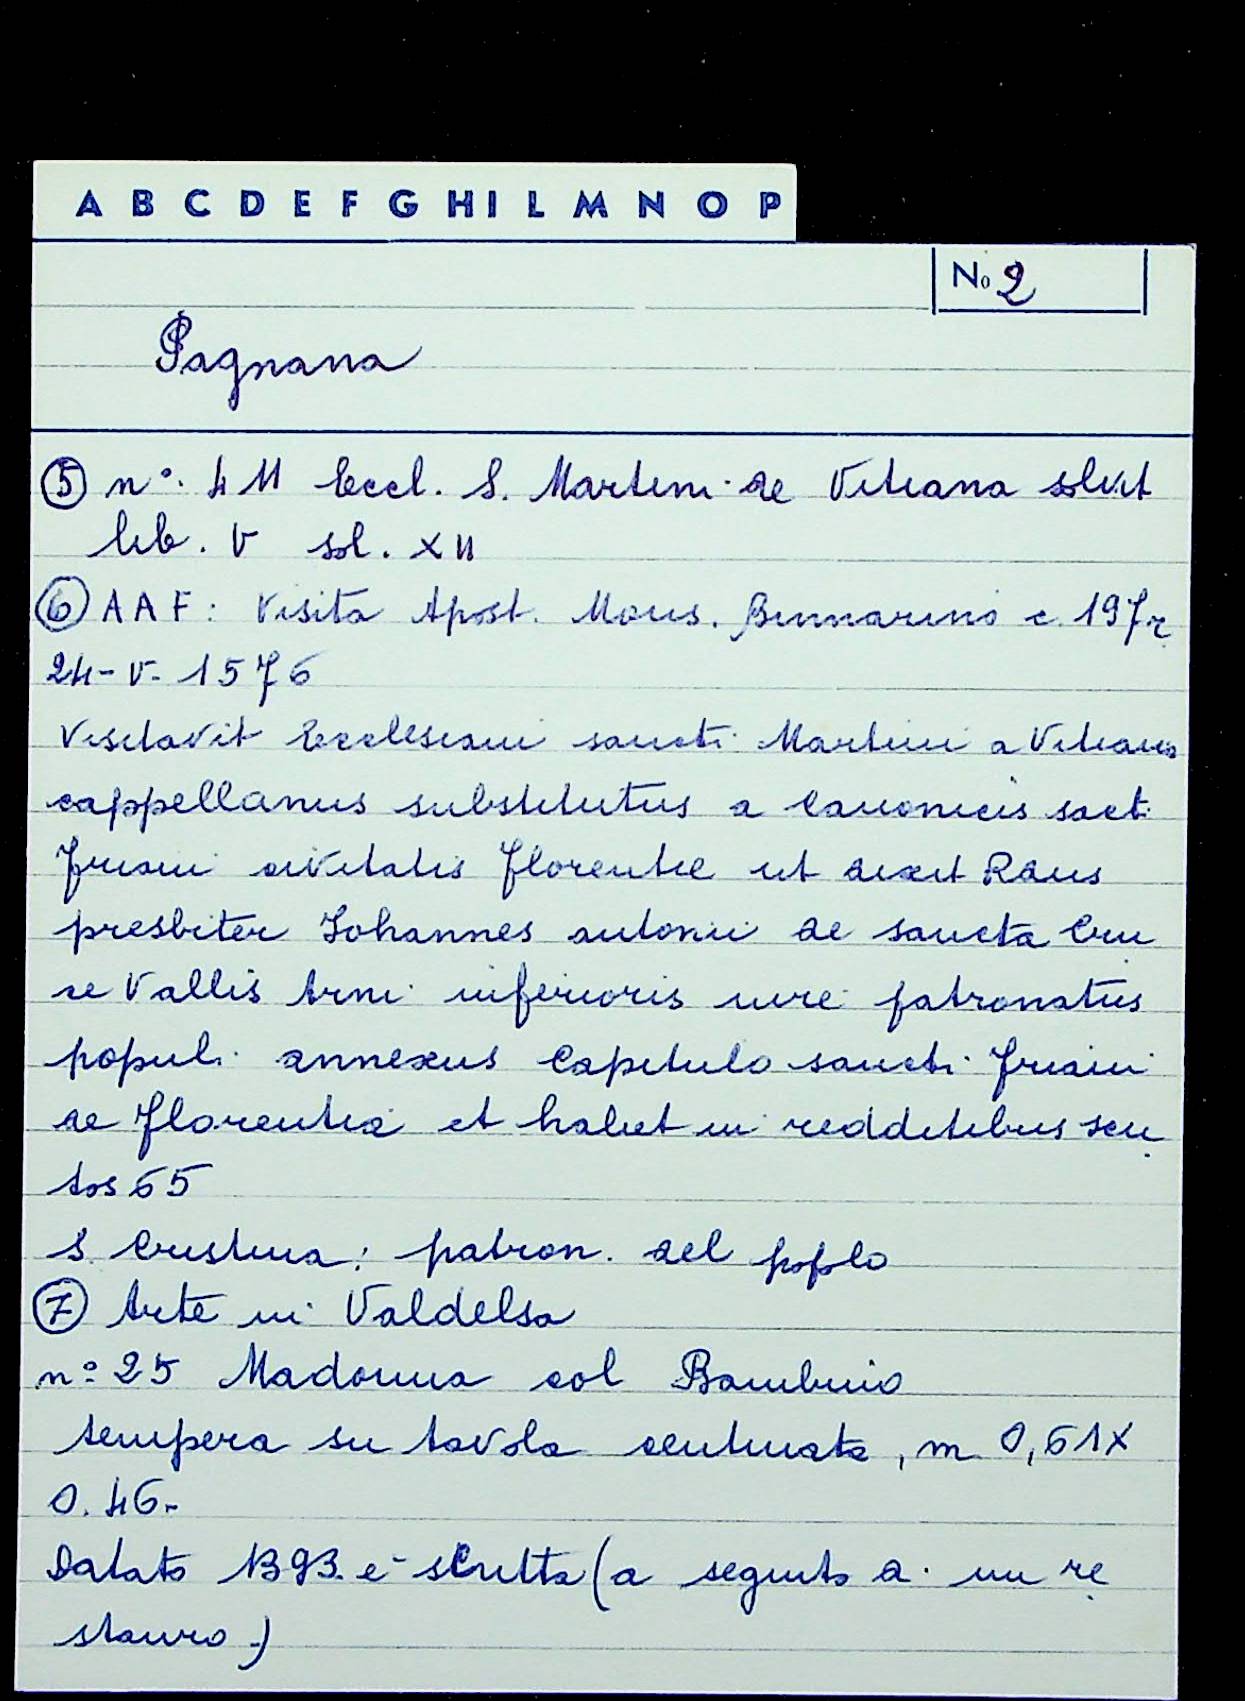 A B C D E F G H I L M N O P
No 2
Pagnana
5 n°. 411 Eccl. S. Martini de Vitiana solvit
lib. V sol. XII
6 AAF: Visita Apost. Mons. Binnarino c. 197r
24-V-1576
Visitavit Ecclesiam sancti Martini a Vitiano
cappellanus substitutus a Canonicis sacti
friani civitatis florentie ut dixit Rdus
presbiter Iohannes antonii de sancta Cru
ce Vallis Arni inferioris iure patronatus
populi annexus Capitulo sancti friani
de florentia et habet in redditibus scu
tos 65
S. Cristina: patron. del popolo
7 Arte in Valdelsa
n° 25 Madonna col Bambino
tempera su tavola centinata, m 0,61X
0.46.
Datato 1393. e scritta (a seguito di un re
stauro.)